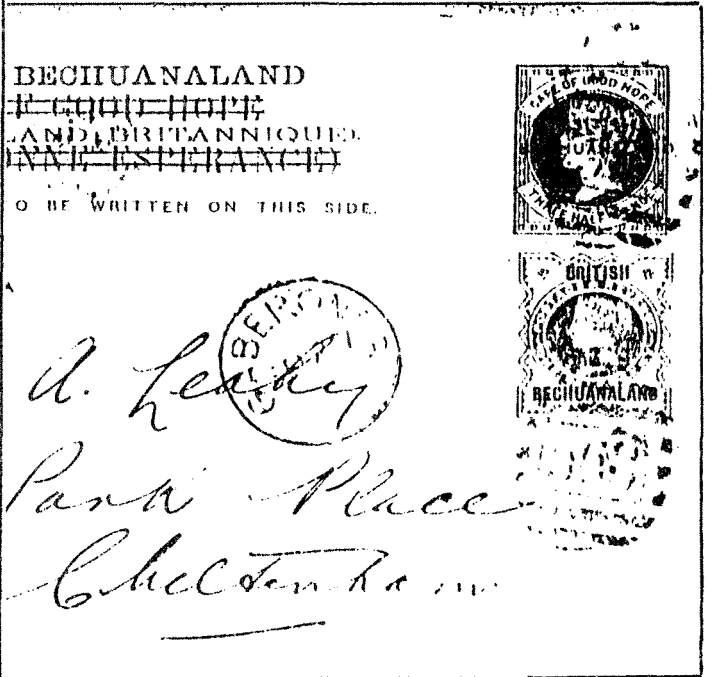 BECHUANALAND
E GOOD HOPE
LAND BRITANNIQUE).
ONNE ESPERANCE)
O BE WRITTEN ON THIS SIDE.
CAPE OF GOOD HOPE
THREE HALF PENCE
BRITISH
BECHUANALAND
A. Leahy
Park Place
Cheltenham